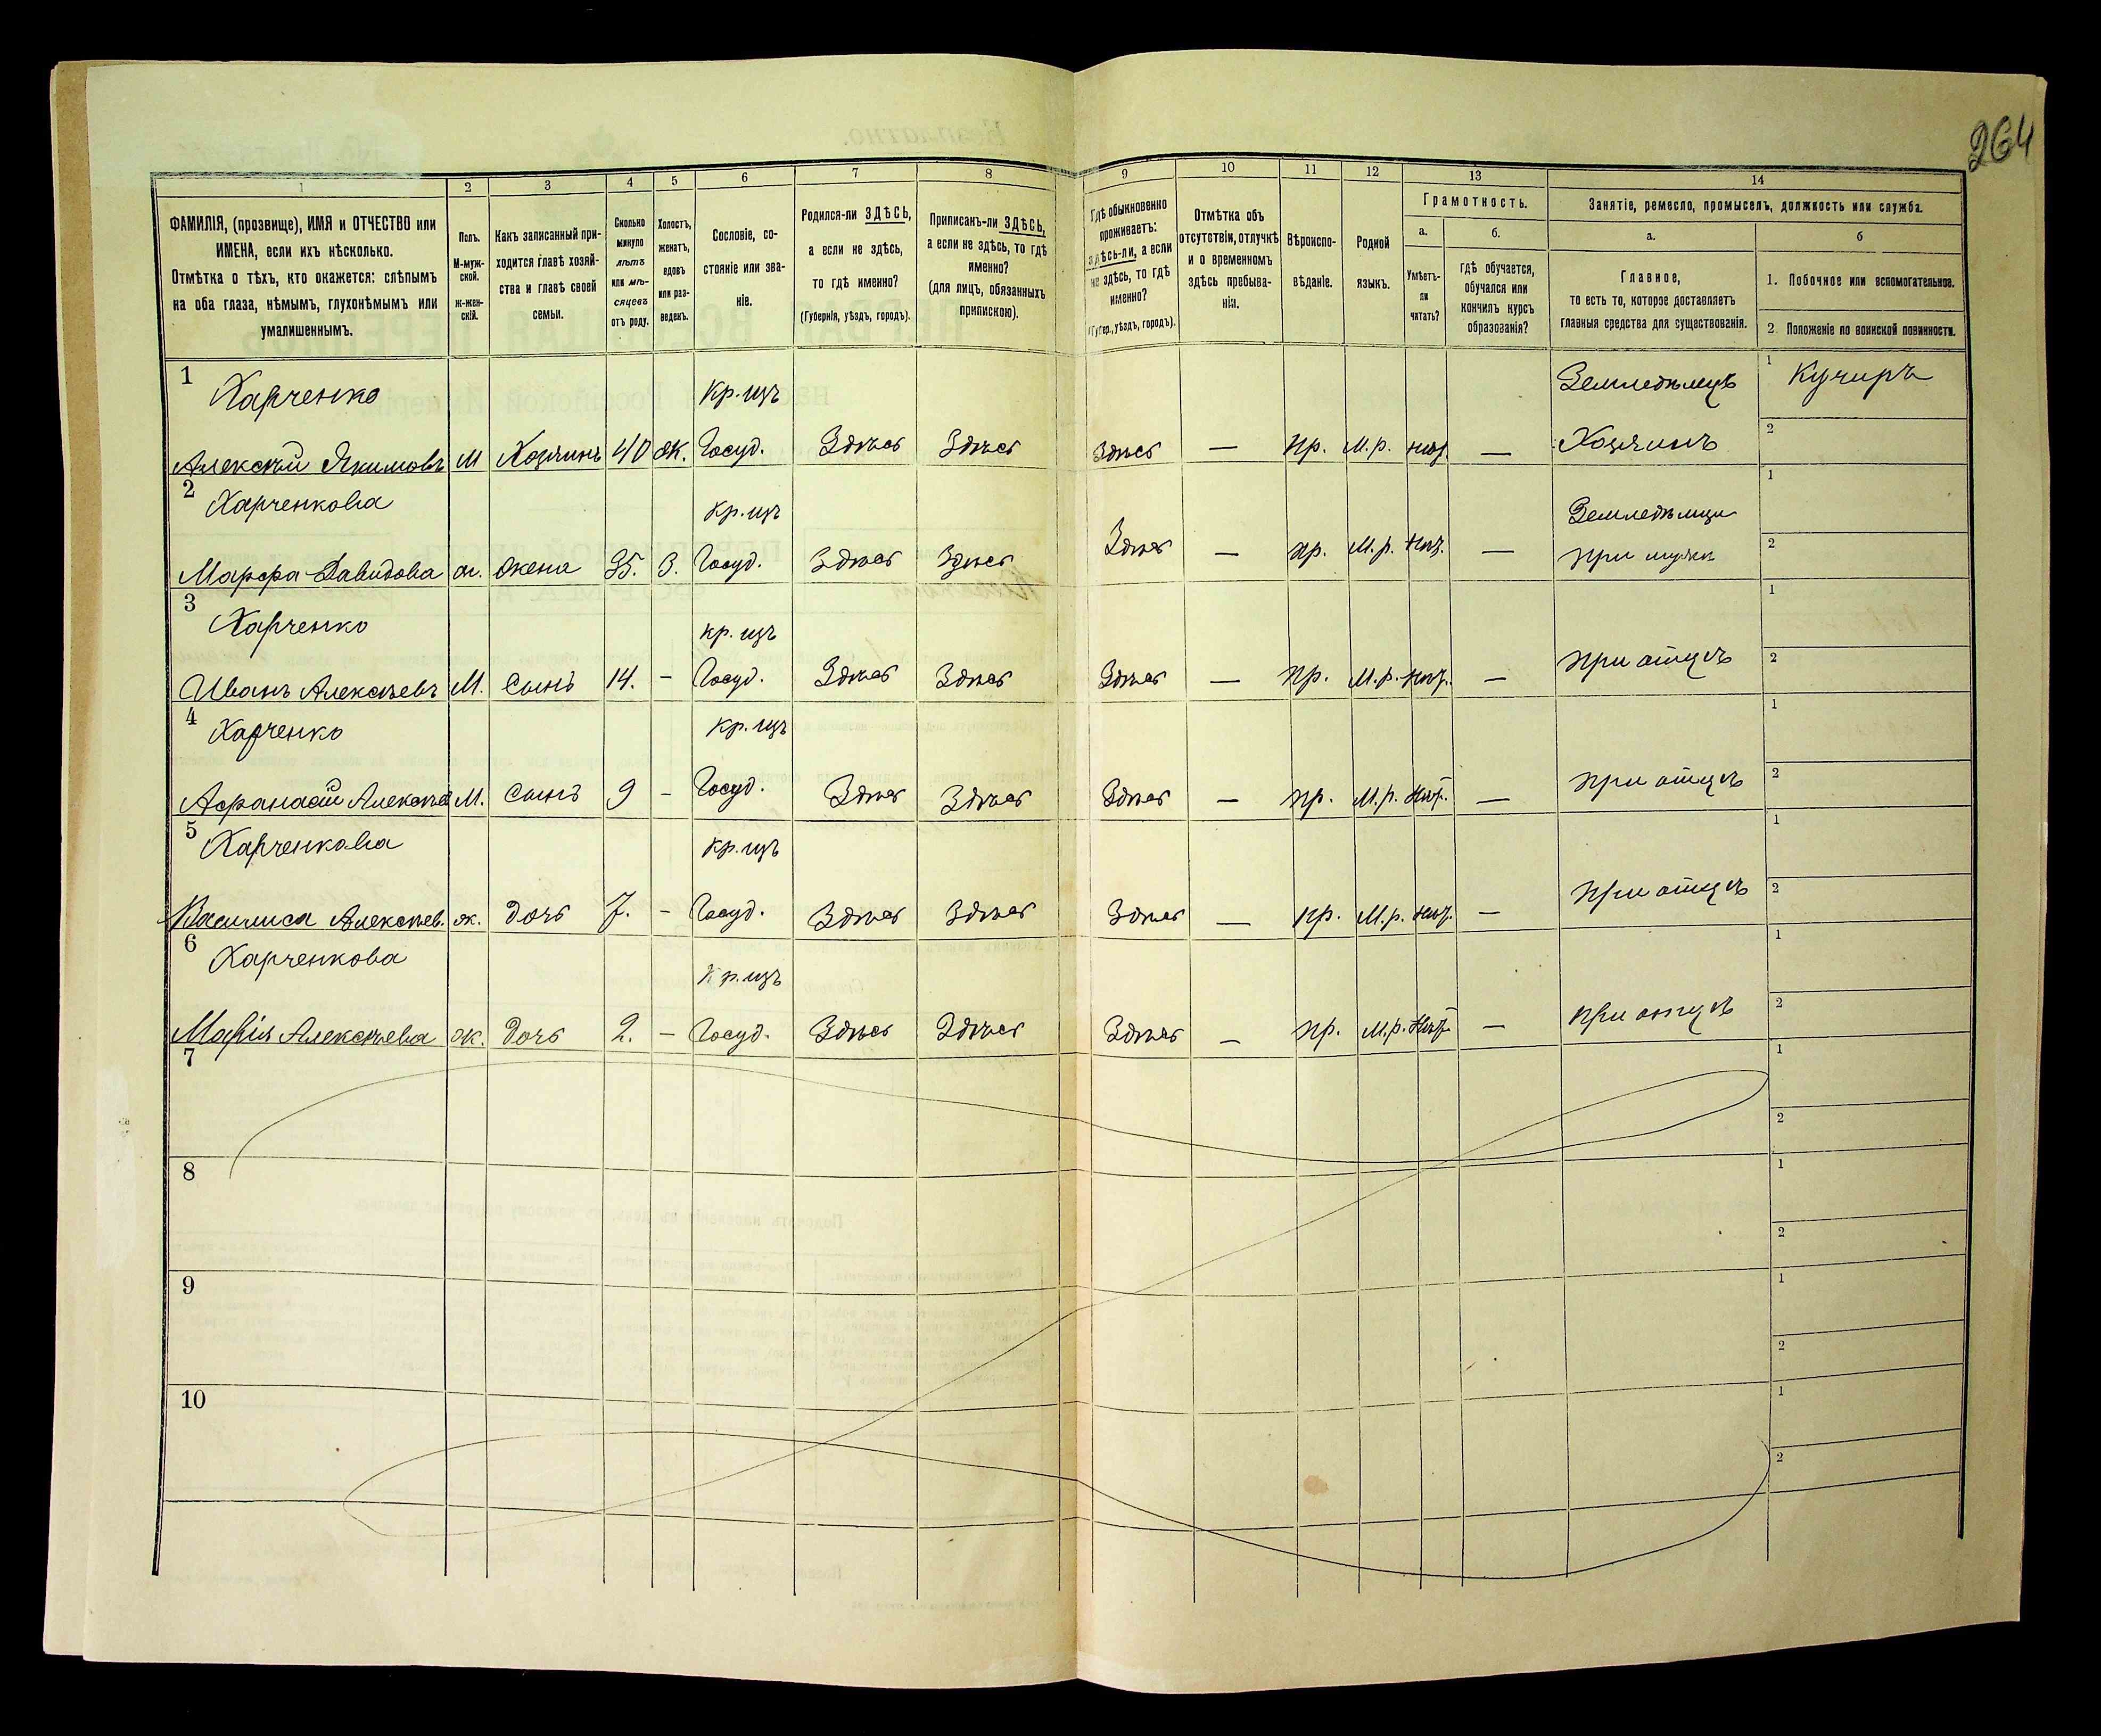 264
1 2 3 4 5 6 7 8 9 10 11 12 13 14
ФАМИЛІЯ, (прозвище), ИМЯ и ОТЧЕСТВО или
ИМЕНА, если ихъ нѣсколько.
Отмѣтка о тѣхъ, кто окажется: слѣпымъ
на оба глаза, нѣмымъ, глухонѣмымъ или
умалишеннымъ.
Полъ.
М-муж-
ской.
ж-жен-
скій.
Какъ записанный при-
ходится главѣ хозяй-
ства и главѣ своей
семьи.
Сколько
минуло
лѣтъ
или мѣ-
сяцевъ
отъ роду.
Холостъ,
женатъ,
вдовъ
или раз-
веденъ.
Сословіе, со-
стояніе или зва-
ніе.
Родился-ли ЗДѢСЬ,
а если не здѣсь,
то гдѣ именно?
(Губернія, уѣздъ, городъ).
Приписанъ-ли ЗДѢСЬ,
а если не здѣсь, то гдѣ
именно?
(для лицъ, обязанныхъ
припискою).
Гдѣ обыкновенно
проживаетъ:
здѣсь-ли, а если
не здѣсь, то гдѣ
именно?
(Губер., уѣздъ, городъ).
Отмѣтка объ
отсутствіи, отлучкѣ
и о временномъ
здѣсь пребыва-
ніи.
Вѣроиспо-
вѣданіе.
Родной
языкъ.
Грамотность.
а.
Умѣетъ-
ли
читать?
б.
гдѣ обучается,
обучался или
кончилъ курсъ
образованія?
Занятіе, ремесло, промыселъ, должность или служба.
а.
Главное,
то есть то, которое доставляетъ
главныя средства для существованія.
б
1. Побочное или вспомогательное.
2. Положеніе по воинской повинности.
1 Харченко Кр. изъ Земледѣлецъ 1 Кучиръ
Алексѣй Якимовъ М Хозяинъ 40 ж. Госуд. Здѣсь Здѣсь Здѣсь — Пр. М.р. нѣт. — Хозяинъ 2
2 Харченкова Кр. изъ Земледѣлци 1
Марфа Давидова ж. жена 35. З. Госуд. Здѣсь Здѣсь Здѣсь — пр. М.р. нѣт. — при мужѣ 2
3 Харченко кр. изъ 1
Иванъ Алексѣевъ М. Сынъ 14. — Госуд. Здѣсь Здѣсь Здѣсь — Пр. М.р. нѣт. — при отцѣ 2
4 Харченко Кр. изъ 1
Афанасій Алексѣе М. Сынъ 9 — Госуд. Здѣсь Здѣсь Здѣсь — пр. М.р. нѣт. — при отцѣ 2
5 Харченкова Кр. изъ 1
Василиса Алексѣев. ж. дочь 7. — Госуд. Здѣсь Здѣсь Здѣсь — пр. М.р. нѣт. — при отцѣ 2
6 Харченкова Кр. изъ 1
Марія Алексѣева ж. дочь 2. — Госуд. Здѣсь Здѣсь Здѣсь — пр. М.р. нѣт. — при отцѣ 2
7 1
2
8 1
2
9 1
2
10 1
2